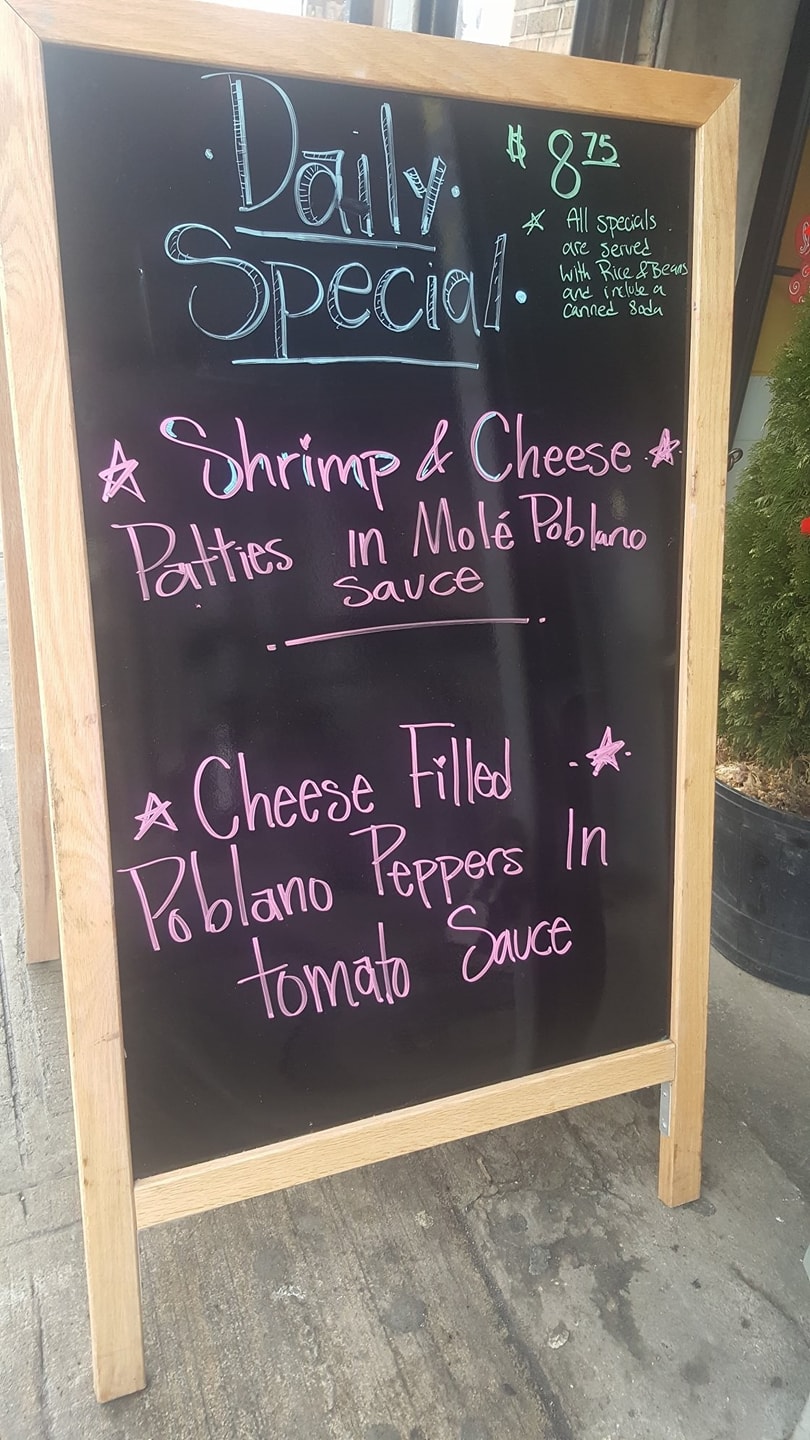 Daily
Special
$ 8 75
All specials
are served
with Rice & Beans
and include a
canned soda
Shrimp & Cheese
Patties in Molé Poblano
sauce
Cheese Filled
Poblano Peppers In
tomato Sauce